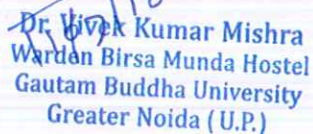 Dr. Vivek Kumar Mishra
Warden Birsa Munda Hostel
Gautam Buddha University
Greater Noida ( U.P.)